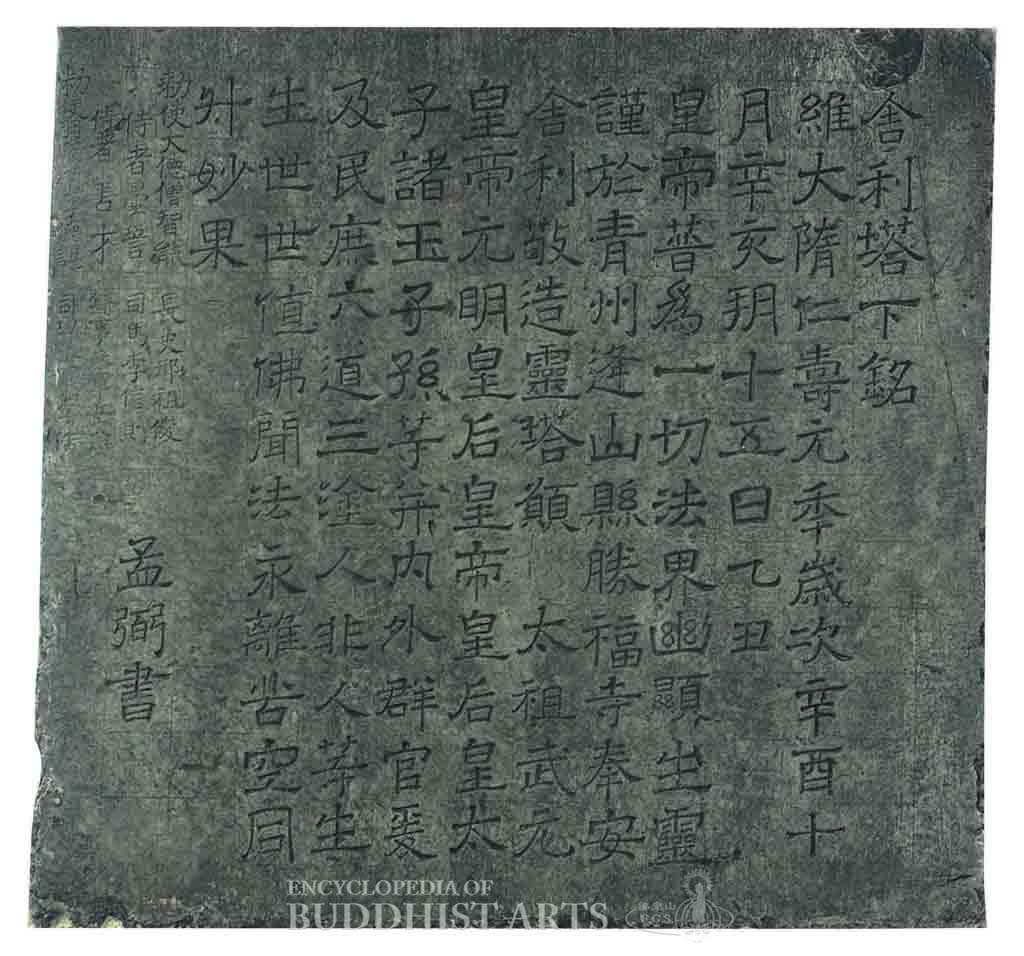 舍利塔下銘
維大隋仁壽元秊歲次辛酉十
月辛亥朔十五日乙丑
皇帝普為一切法界幽顯生靈
謹於青州逢山縣勝福寺奉安
舍利敬造靈塔願 太祖武元
皇帝元明皇后皇帝皇后皇太
子諸王子孫等并內外群官爰
及民庶六道三塗人非人等生
生世世值佛聞法永離苦空同
升妙果
勑使大德僧智能 長史邢祖俊
侍者曇 司馬李信則
侍者善才
勑使
孟弼書
ENCYCLOPEDIA OF
BUDDHIST ARTS
佛光山
F.G.S.